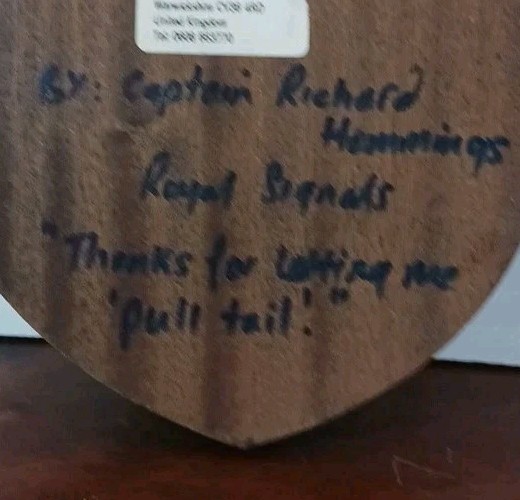 Warwickshire CV36 4BD
United Kingdom
Tel:
BY: Captain Richard
Hemmings
Royal Signals
"Thanks for letting me
'pull tail'."